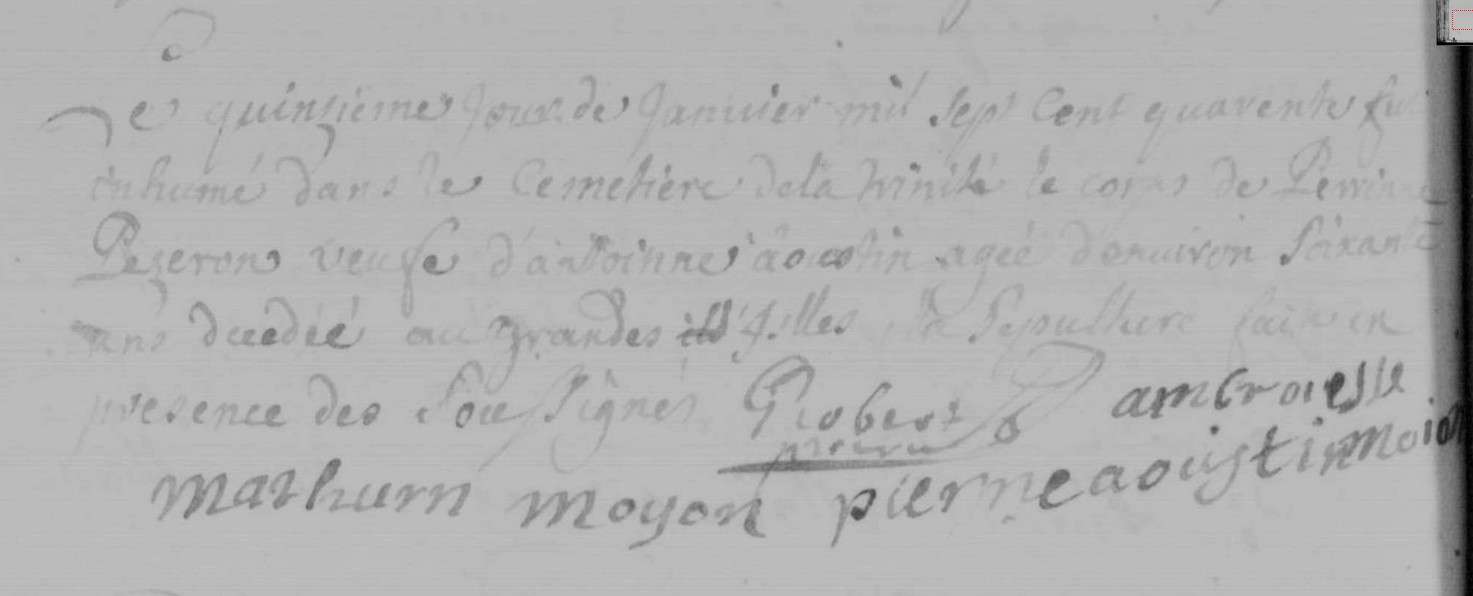 Le quinsieme jour de Janvier mil sept Cent quarente fut
inhumé dans le Cemetiere dela trinité le corps de Perrinne
Pezeron veufe d'antoinne aoustin agée d'environ soixante
ans decedée au grandes isles, la sepulture fait en
presence des soussignés Robert ambroise
mathurn moyon pierre aoustin moion